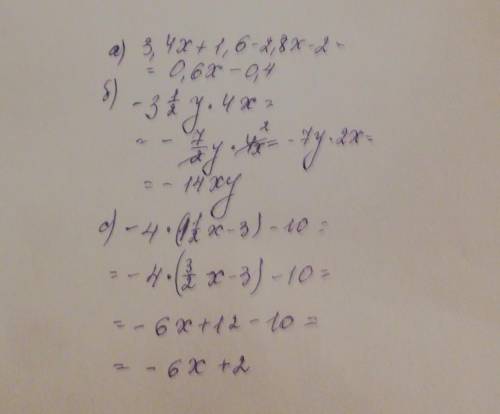 а) 3,4x+1,6-2,8x-2=
= 0,6x-0,4
б)
-3 1/2 y · 4x =
= - 7/2 y · 4x = -7y · 2x =
= - 14xy
с) -4 · (1 1/2 x - 3) - 10 =
= -4 · (3/2 x - 3) - 10 =
= - 6x + 12 - 10 =
= - 6x + 2